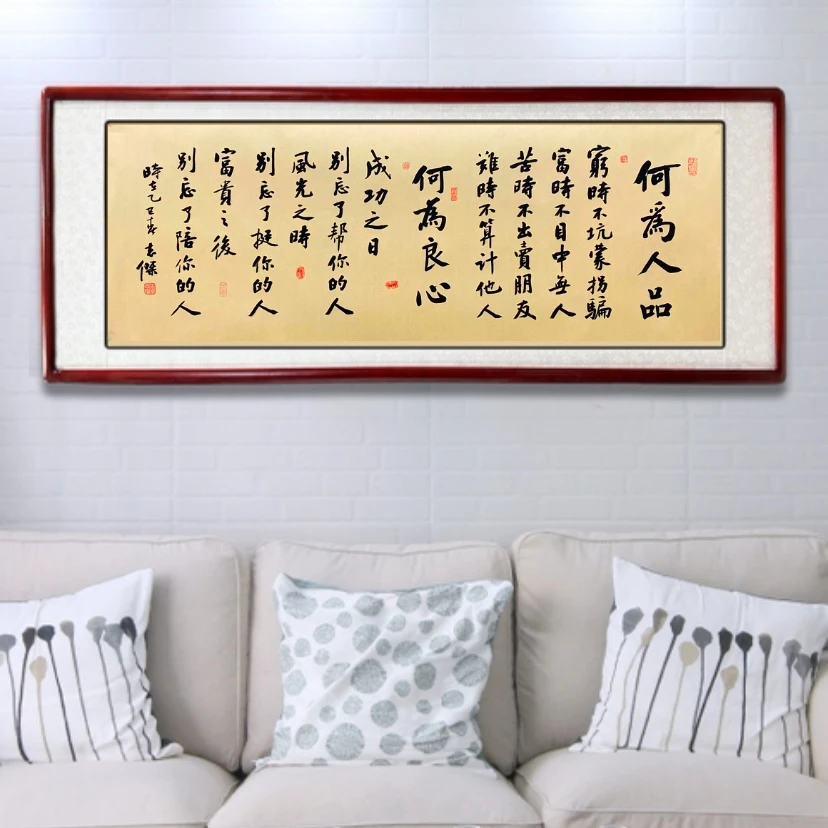 何為人品
窮時不坑蒙拐騙
富時不目中無人
苦時不出賣朋友
難時不算計他人
何為良心
成功之日
別忘了帮你的人
風光之時
別忘了挺你的人
富貴之後
別忘了陪你的人
時在乙巳